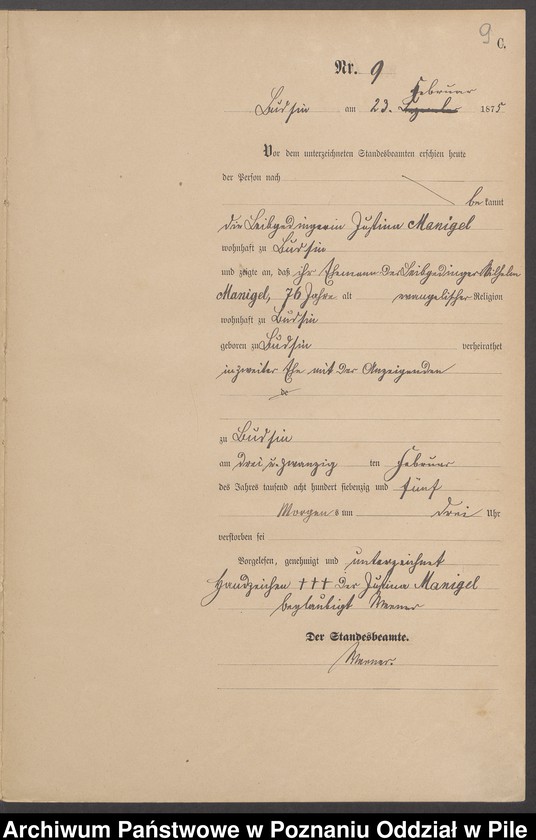 9
C.
Nr. 9
Februar
Budsin am 23. 1875
Vor dem unterzeichneten Standesbeamten erschien heute
der Person nach
bekannt
die Leibgedingerin Justina Manigel
wohnhaft zu Budsin
und zeigte an, daß ihr Ehemann der Leibgedinger Wilhelm
Manigel, 76 Jahre alt evangelischer Religion
wohnhaft zu Budsin
geboren zu Budsin verheirathet
in zweiter Ehe mit der Anzeigenden
de
zu Budsin
am drei u. zwanzig ten Februar
des Jahres tausend acht hundert siebenzig und fünf
Morgens um drei Uhr
verstorben sei
Vorgelesen, genehmigt und unterzeichnet
Handzeichen ††† der Justina Manigel
beglaubigt Werner
Der Standesbeamte.
Werner.
Archiwum Państwowe w Poznaniu Oddział w Pile